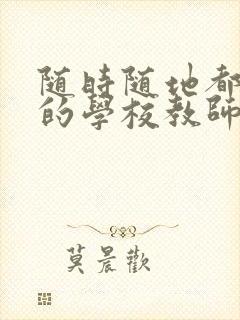 随時随地都
的學校教師
莫晨歡